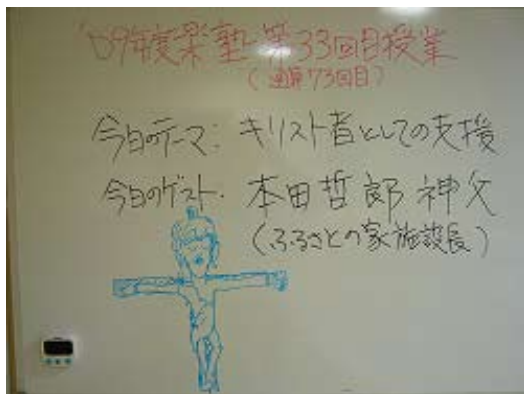 '09年度 塾 第33回目授業
(通算73回目)
今日のテーマ: キリスト者としての支援
今日のゲスト. 本田哲郎神父
(ふるさとの家施設長)